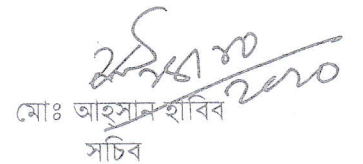 মোঃ আহ্সান হাবিব
সচিব